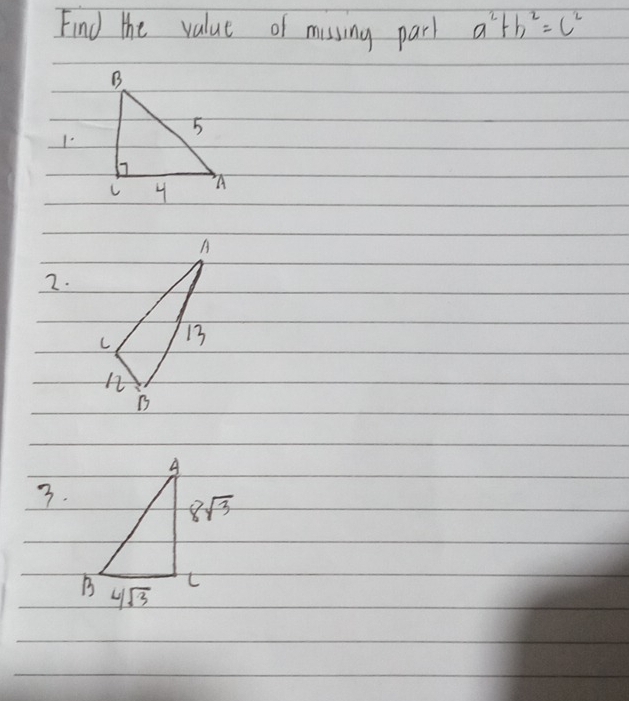 Find the value of missing part a²+b²=c²
B
1.
5
C
4
A
A
2.
C
13
12
B
A
3.
8√3
B
C
4√3